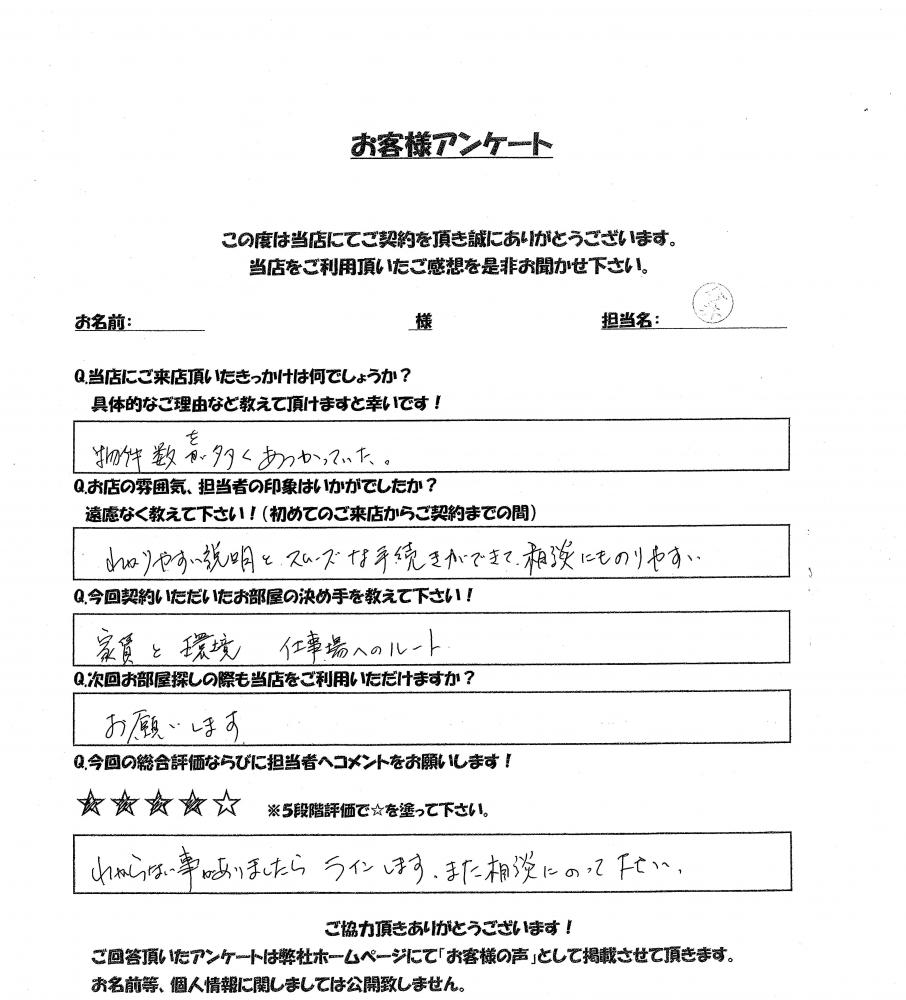 お客様アンケート
この度は当店にてご契約を頂き誠にありがとうございます。
当店をご利用頂いたご感想を是非お聞かせ下さい。
お名前: 様 担当名:
Q.当店にご来店頂いたきっかけは何でしょうか？
具体的なご理由など教えて頂けますと幸いです！
物件数を多くあつかっていた。
Q.お店の雰囲気、担当者の印象はいかがでしたか？
遠慮なく教えて下さい！(初めてのご来店からご契約までの間)
わかりやすい説明と、スムーズな手続きができて、相談にものりやすい
Q.今回契約いただいたお部屋の決め手を教えて下さい！
家賃と環境 仕事場へのルート
Q.次回お部屋探しの際も当店をご利用いただけますか？
お願いします
Q.今回の総合評価ならびに担当者へコメントをお願いします！
★★★★☆ ※5段階評価で☆を塗って下さい。
わからない事がありましたら ラインします、また相談にのって下さい、
ご協力頂きありがとうございます！
ご回答頂いたアンケートは弊社ホームページにて「お客様の声」として掲載させて頂きます。
お名前等、個人情報に関しましては公開致しません。